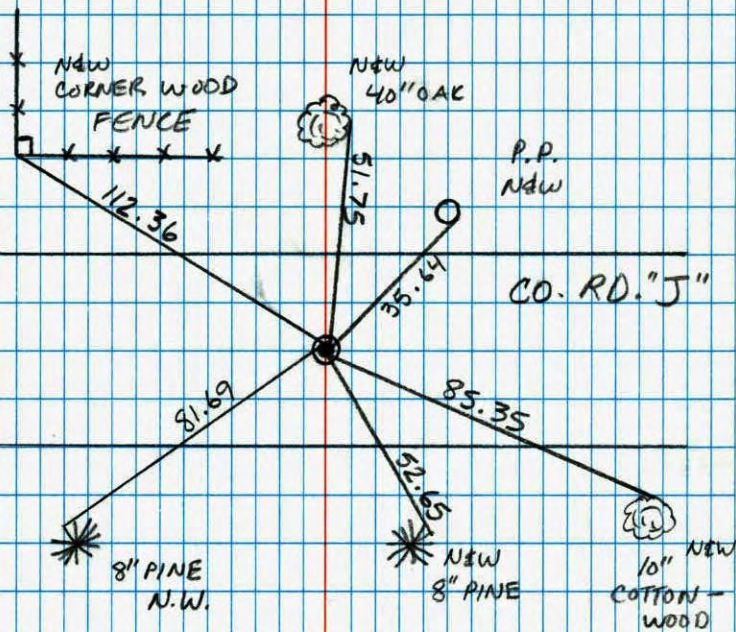 N&W
CORNER WOOD
FENCE
N&W
40" OAK
P.P.
N&W
112.36
51.75
35.64
CO. RD. "J"
81.69
85.35
52.65
8" PINE
N.W.
N&W
8" PINE
N&W
10"
COTTON-
WOOD